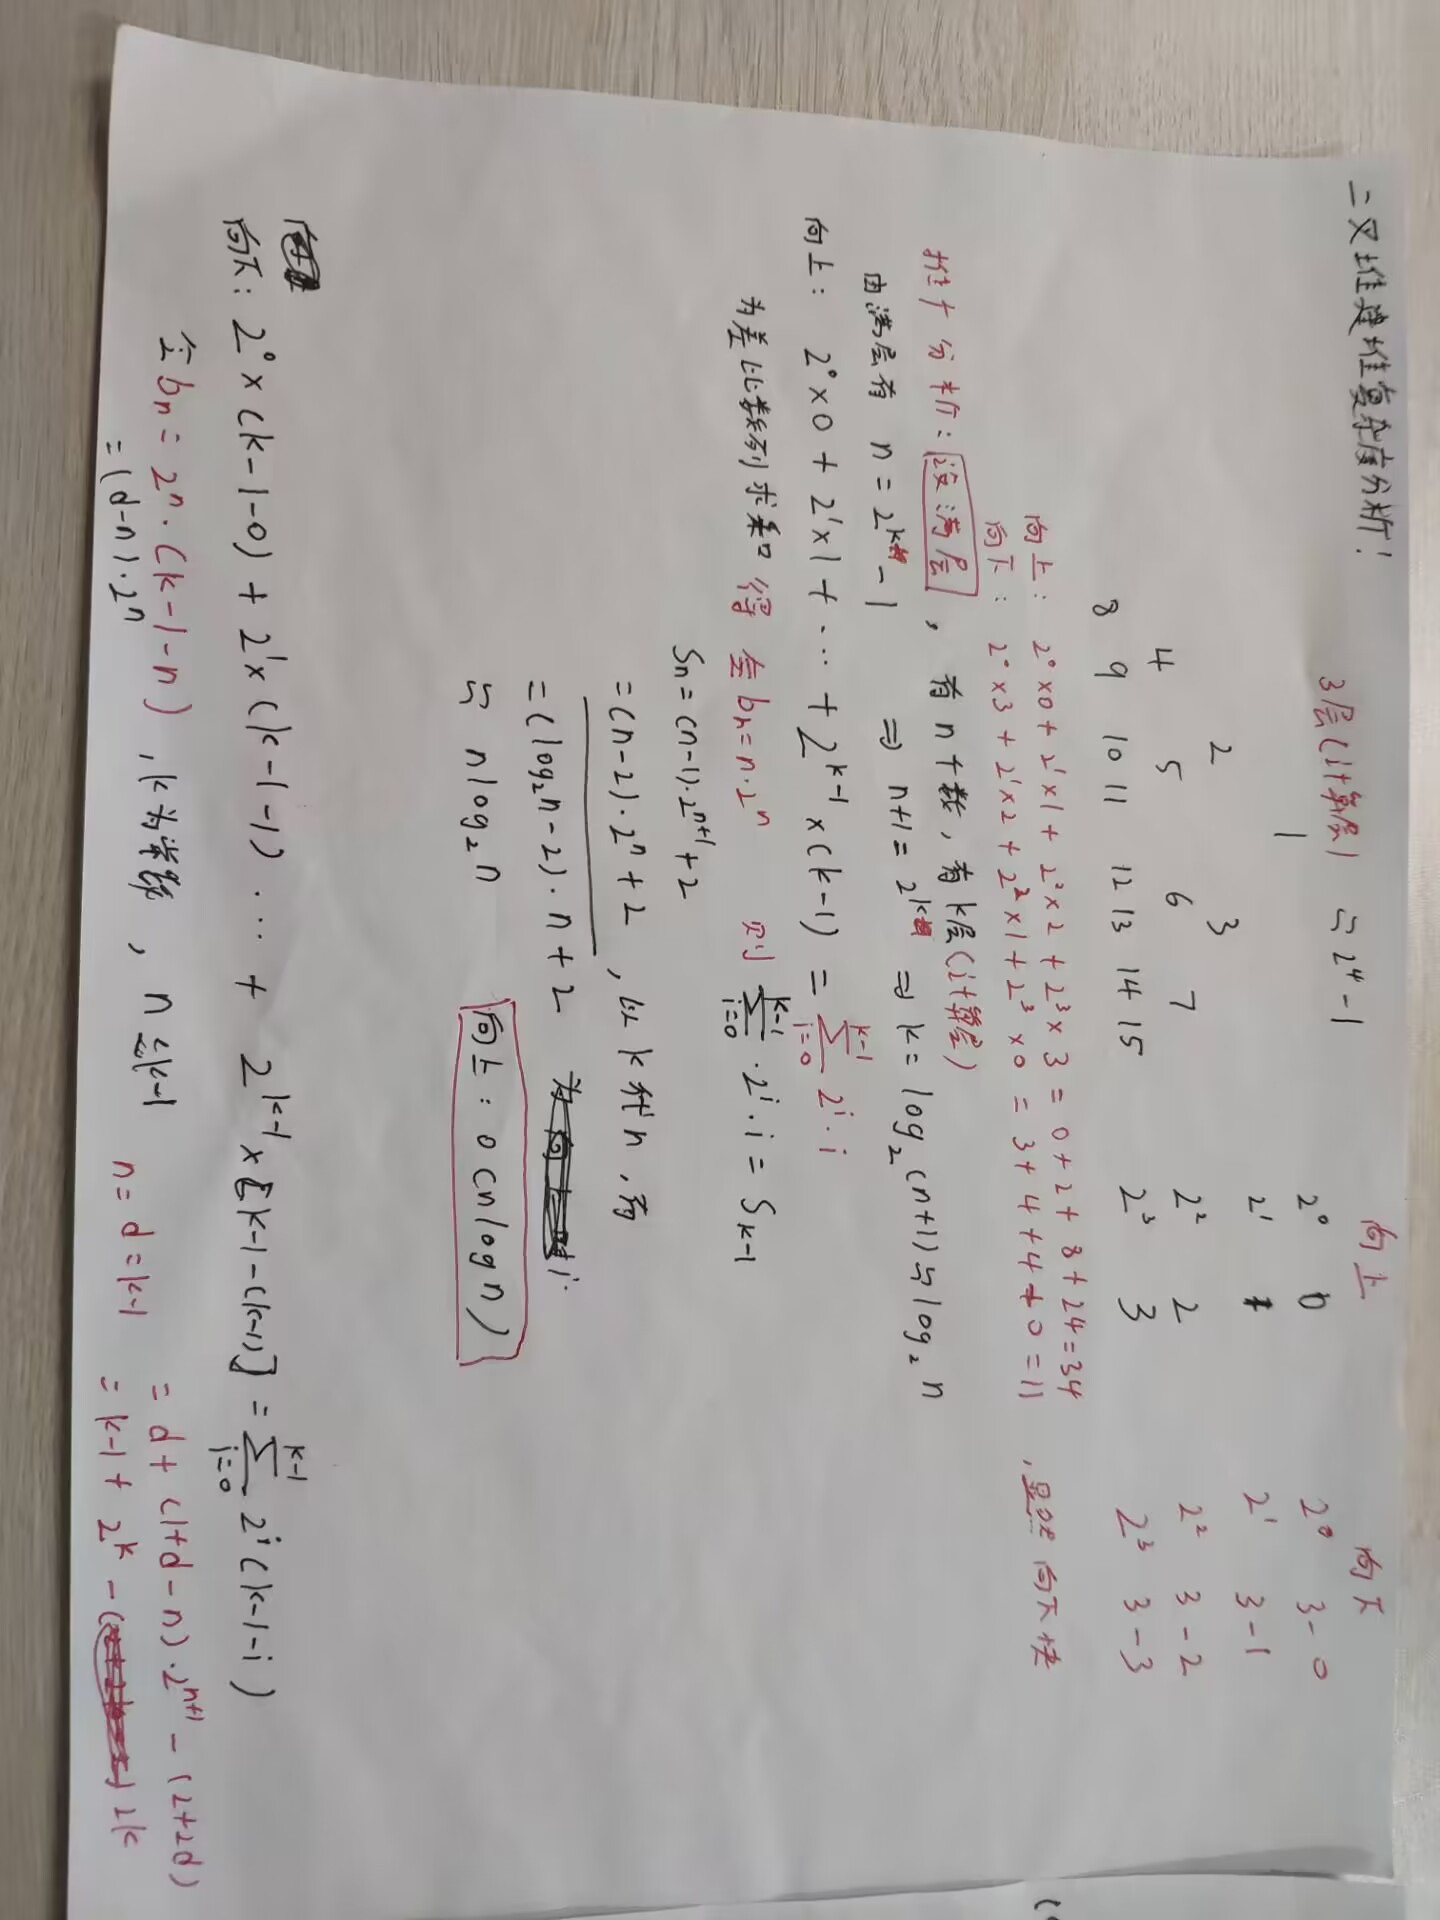 二叉堆建堆复杂度分析!
3层(计算层) ≈ 2⁴-1
1
2 3
4 5 6 7
8 9 10 11 12 13 14 15
向上
2⁰ 0
2¹ 1
2² 2
2³ 3
向下
2⁰ 3-0
2¹ 3-1
2² 3-2
2³ 3-3
向上: 2⁰×0+2¹×1+2²×2+2³×3=0+2+8+24=34
向下: 2⁰×3+2¹×2+2²×1+2³×0=3+4+4+0=11 ,显然向下快
推广分析:设满层, 有n个数,有k层(计算层)
由满层有 n=2ᵏ-1 ⇒ n+1=2ᵏ ⇒ k=log₂(n+1)≈log₂n
向上: 2⁰×0+2¹×1+…+2ᵏ⁻¹×(k-1)=∑_{i=0}^{k-1} 2ⁱ·i
为差比数列求和 得 令bₙ=n·2ⁿ 则 ∑_{i=0}^{k-1}·2ⁱ·i=S_{k-1}
Sₙ=(n-1)·2ⁿ⁺¹+2
=(n-2)·2ⁿ+2 ,以k代n,有
=(log₂n-2)·n+2
≈ nlog₂n 向上:O(nlogn)
向下: 2⁰×(k-1-0)+2¹×(k-1-1)…+2ᵏ⁻¹×[k-1-(k-1)]=∑_{i=0}^{k-1} 2ⁱ(k-1-i)
令bₙ=2ⁿ·(k-1-n) ,k为常数, n≤k-1
=(d-n)·2ⁿ
n=d=k-1
=d+(1+d-n)·2ⁿ⁺¹-(2+2d)
=k-1+2ᵏ-2k